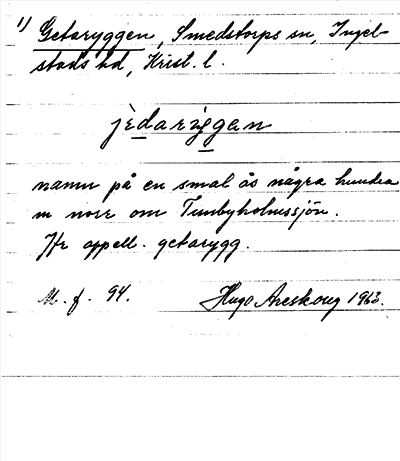 1) Getaryggen, Smedstorps sn, Ingel-
stads hd, Krist. l.
jèdariggan
namn på en smal ås några hundra
m norr om Tunbyholmssjön.
Jfr appell. getarygg.
M. f. 94. Hugo Areskoug 1963.